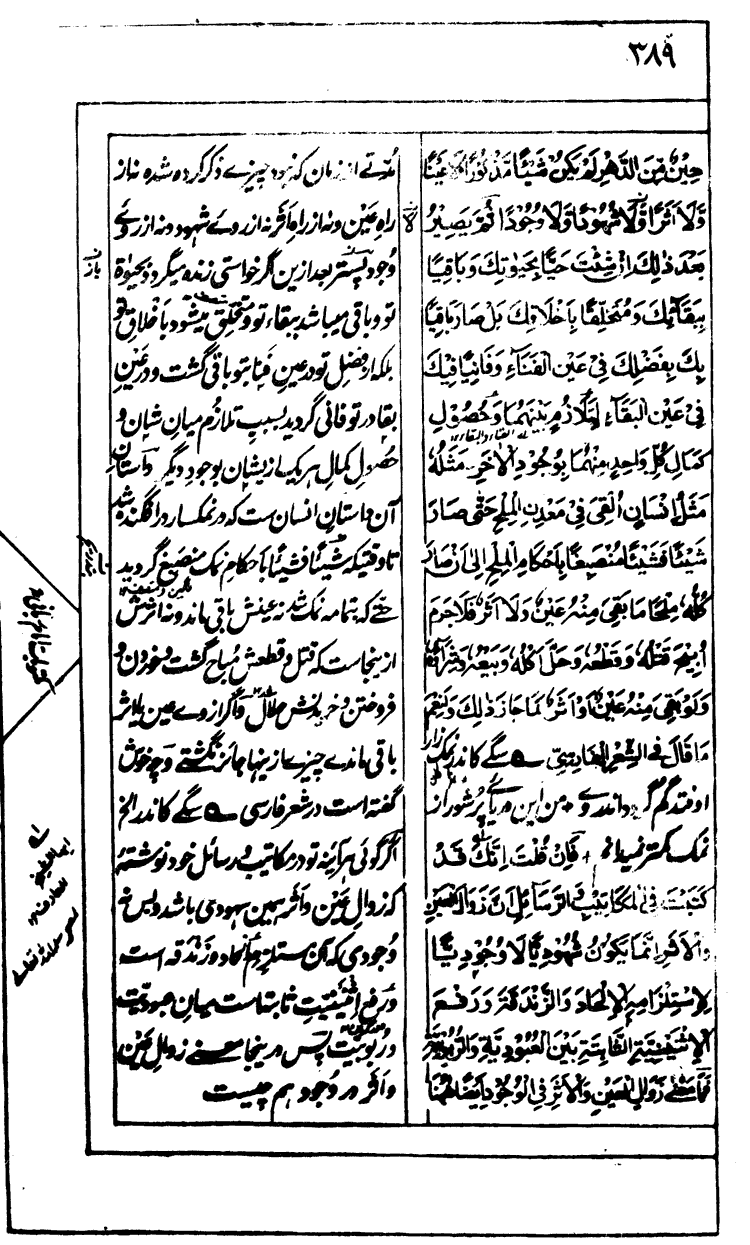 ۳۸۹
حِيْنٌ مِّنَ الدَّهْرِ لَمْ يَكُنْ شَيْئًا مَذْكُوْرًا لَا عَيْنًا
وَّلَا اَثَرًا وَّلَا شُهُوْدًا وَلَا وُجُوْدًا ثُمَّ يَصِيْرُ
بَعْدَ ذٰلِكَ اِنْ شِئْتَ حَيًّا بِحَيٰوتِكَ وَبَاقِيًا
بِبَقَائِكَ وَمُتَخَلِّقًا بِاَخْلَاقِكَ بَلْ صَارَ بَاقِيًا
بِكَ بِفَضْلِكَ فِيْ عَيْنِ الْفَنَاءِ وَفَانِيًا فِيْكَ
فِيْ عَيْنِ الْبَقَاءِ لِتَلَازُمٍ بَيْنَهُمَا وَحُصُوْلِ
كَمَالِ كُلِّ وَاحِدٍ مِنْهُمَا بِوُجُوْدِ الْاٰخَرِ مَثَلُهُ
مَثَلُ اِنْسَانٍ اُلْقِيَ فِيْ مَعْدِنِ الْمِلْحِ حَتّٰى صَارَ
شَيْئًا فَشَيْئًا مُنْصَبِغًا بِاَحْكَامِ الْمِلْحِ اِلٰى اَنْ صَارَ
كُلُّهُ مِلْحًا مَا بَقِيَ مِنْهُ عَيْنٌ وَلَا اَثَرٌ فَلَا جَرَمَ
اُبِيْحَ قَتْلُهُ وَقَطْعُهُ وَحَلَّ اَكْلُهُ وَبَيْعُهُ وَشِرَاؤُهُ
وَلَوْ بَقِيَ مِنْهُ عَيْنٌ اَوْ اَثَرٌ لَمَا جَازَ ذٰلِكَ وَلَنِعْمَ
مَا قَالَ فِي الشِّعْرِ الْفَارِسِيِّ ے سگے کاندر نمک زار
اوفتد گم گردد اندر وے ٭ من این دریاے پر شور از
نمک کمتر نمیدانم ٭ فَاِنْ قُلْتَ اِنَّكَ قَدْ
كَتَبْتَ فِي الْمَكَاتِيْبِ وَالرَّسَائِلِ اَنَّ زَوَالَ الْعَيْنِ
وَالْاَثَرِ اِنَّمَا يَكُوْنُ شُهُوْدِيًّا لَا وُجُوْدِيًّا
لِاِسْتِلْزَامِهِ الْاِلْحَادَ وَالزَّنْدَقَةَ وَرَفْعَ
الْاِثْنَيْنِيَّةِ الثَّابِتَةِ بَيْنَ الْعُبُوْدِيَّةِ وَالرُّبُوْبِيَّةِ
فَمَا مَعْنٰى زَوَالِ الْعَيْنِ وَالْاَثَرِ فِي الْوُجُوْدِ اَيْضًا هُهُنَا
مُدّتے از زمان که نبود چیزے ذکر کرده شده نه از
راهِ عَیْن و نه از راهِ اَثر نه از روے شهود و نه از روے
وُجود پستر بعد ازین اگر خواستی زنده میگردد بحیوٰة
تو و باقی میباشد ببقاء تو و متخلق میشود باَخلاقِ تو
بلکه از فضل تو در عینِ فَنا بتو باقی گشت و در عَینِ
بقا در تو فانی گردید بسببِ تلازُم میانِ شان و
حصُولِ کمالِ هر یک از یشان بوجود دیگر داستانِ
آن داستانِ انسان ست که در نمکسار در افگنده شد
تا وقتیکه شَیئًا فَشَیئًا باَحکامِ نمک منصبغ گردید
حتے که بتمامه نمک شد نه عینش باقی ماند و نه اثرش
از ینجاست که قتل و قطعش مُباح گشت و خوردن و
فروختن و خریدنش حلال و اگر از وے عین یا اثر
باقی ماندے چیزے ازینها جائز نگشتے و چه خوش
گفته است در شعر فارسی ے سگے کاندر الخ
اگر گوئی هر آینه تو در مکاتیب و رسائل خود نوشتهٔ
که زوالِ عَین و اَثر همین شهودی باشد و بس نه
وُجودی که آن مستلزم اِلحاد و زَندقه است
و رفع اِثنینیتِ ثابت است میانِ عبودیت
و ربوبیت پس در ینجا معنے زوالِ عَین
و اَثر در وُجود هم چیست
لا